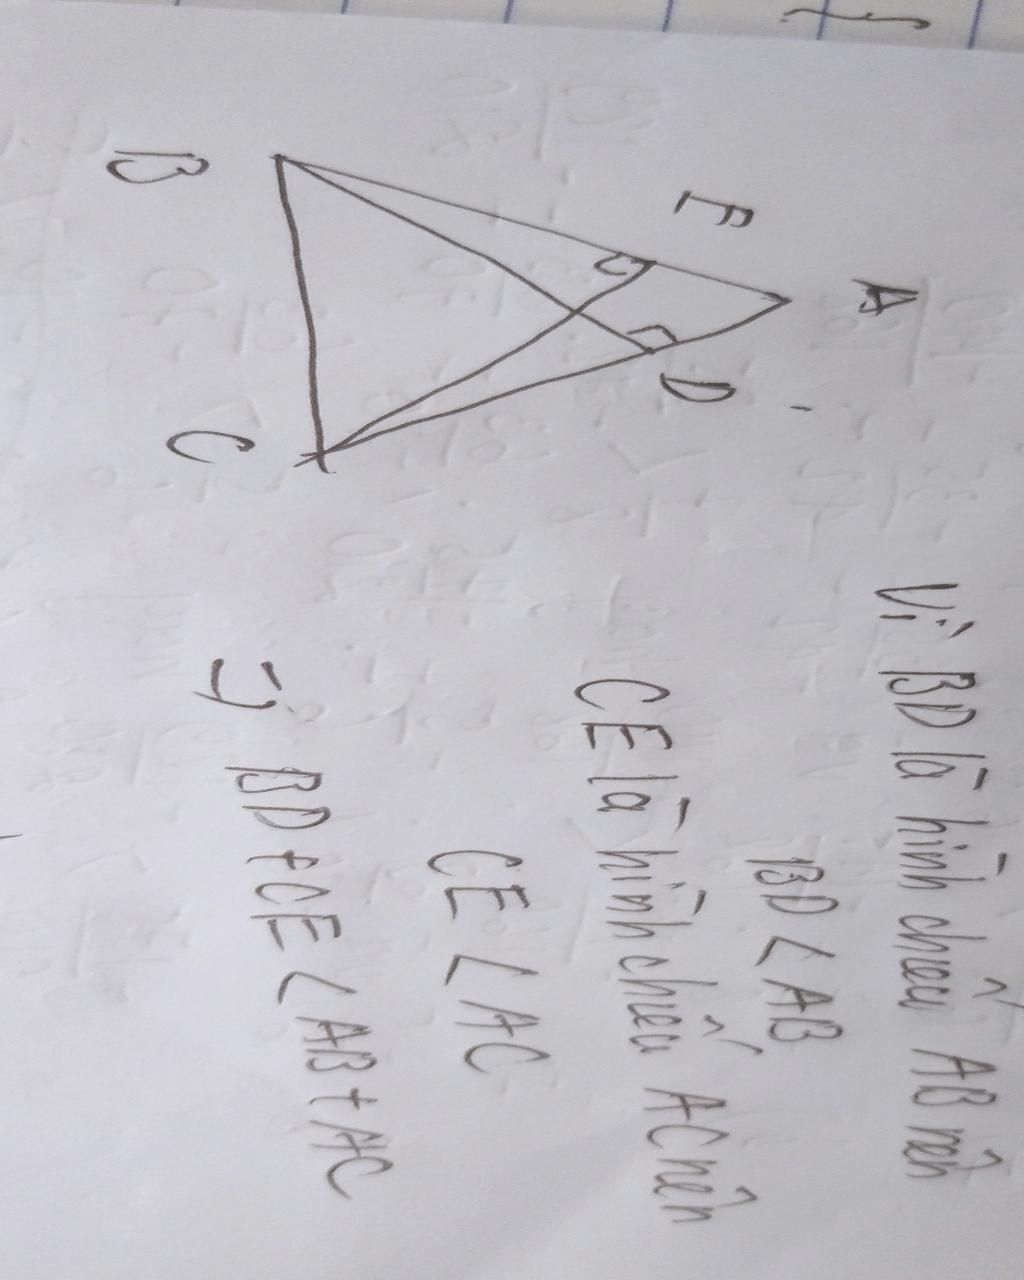 A
F
D
B
C
Vì BD là hình chiếu AB nên
BD < AB
CE là hình chiếu AC nên
CE < AC
=> BD + CE < AB + AC